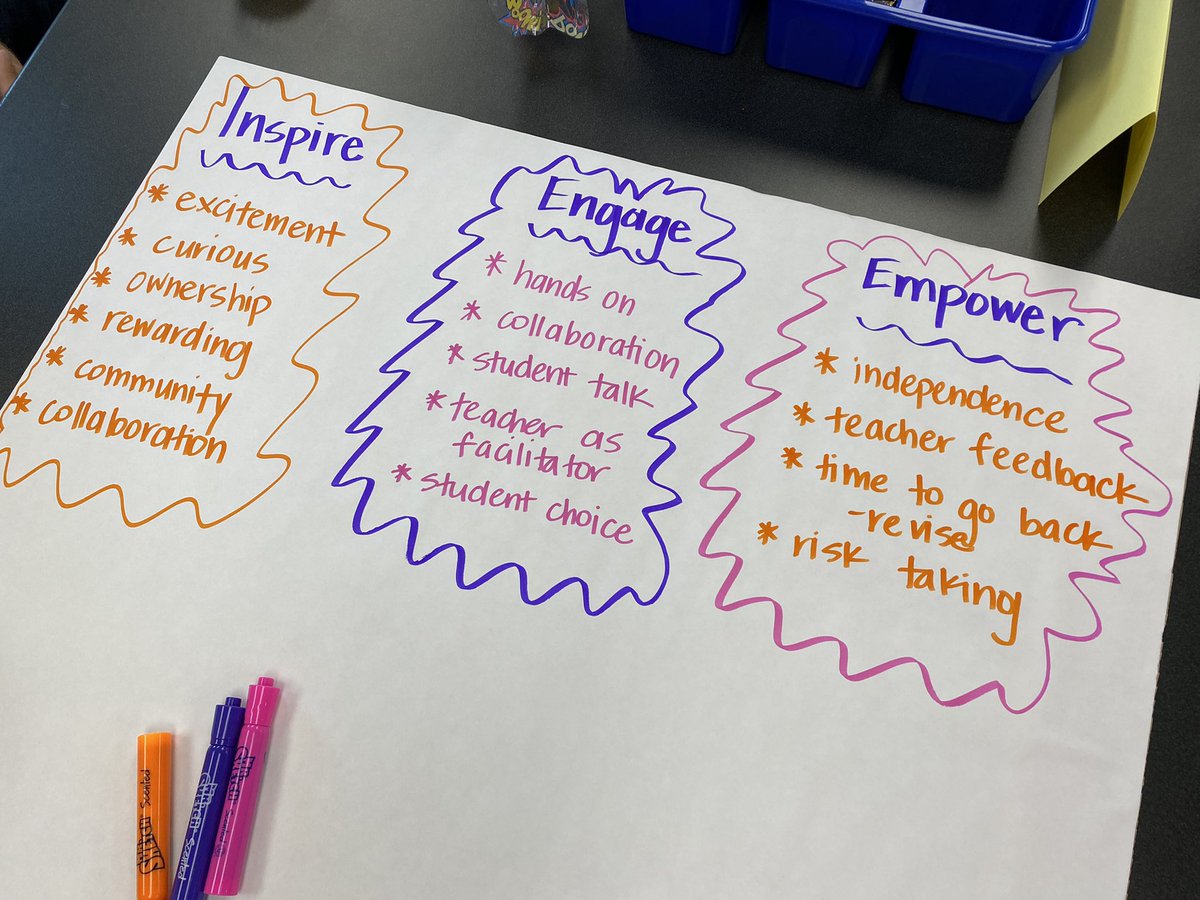 Inspire
* excitement
* curious
* ownership
* rewarding
* community
* collaboration
Engage
* hands on
* collaboration
* student talk
* teacher as
facilitator
* student choice
Empower
* independence
* teacher feedback
* time to go back
-revise
* risk taking
Scented
Scented